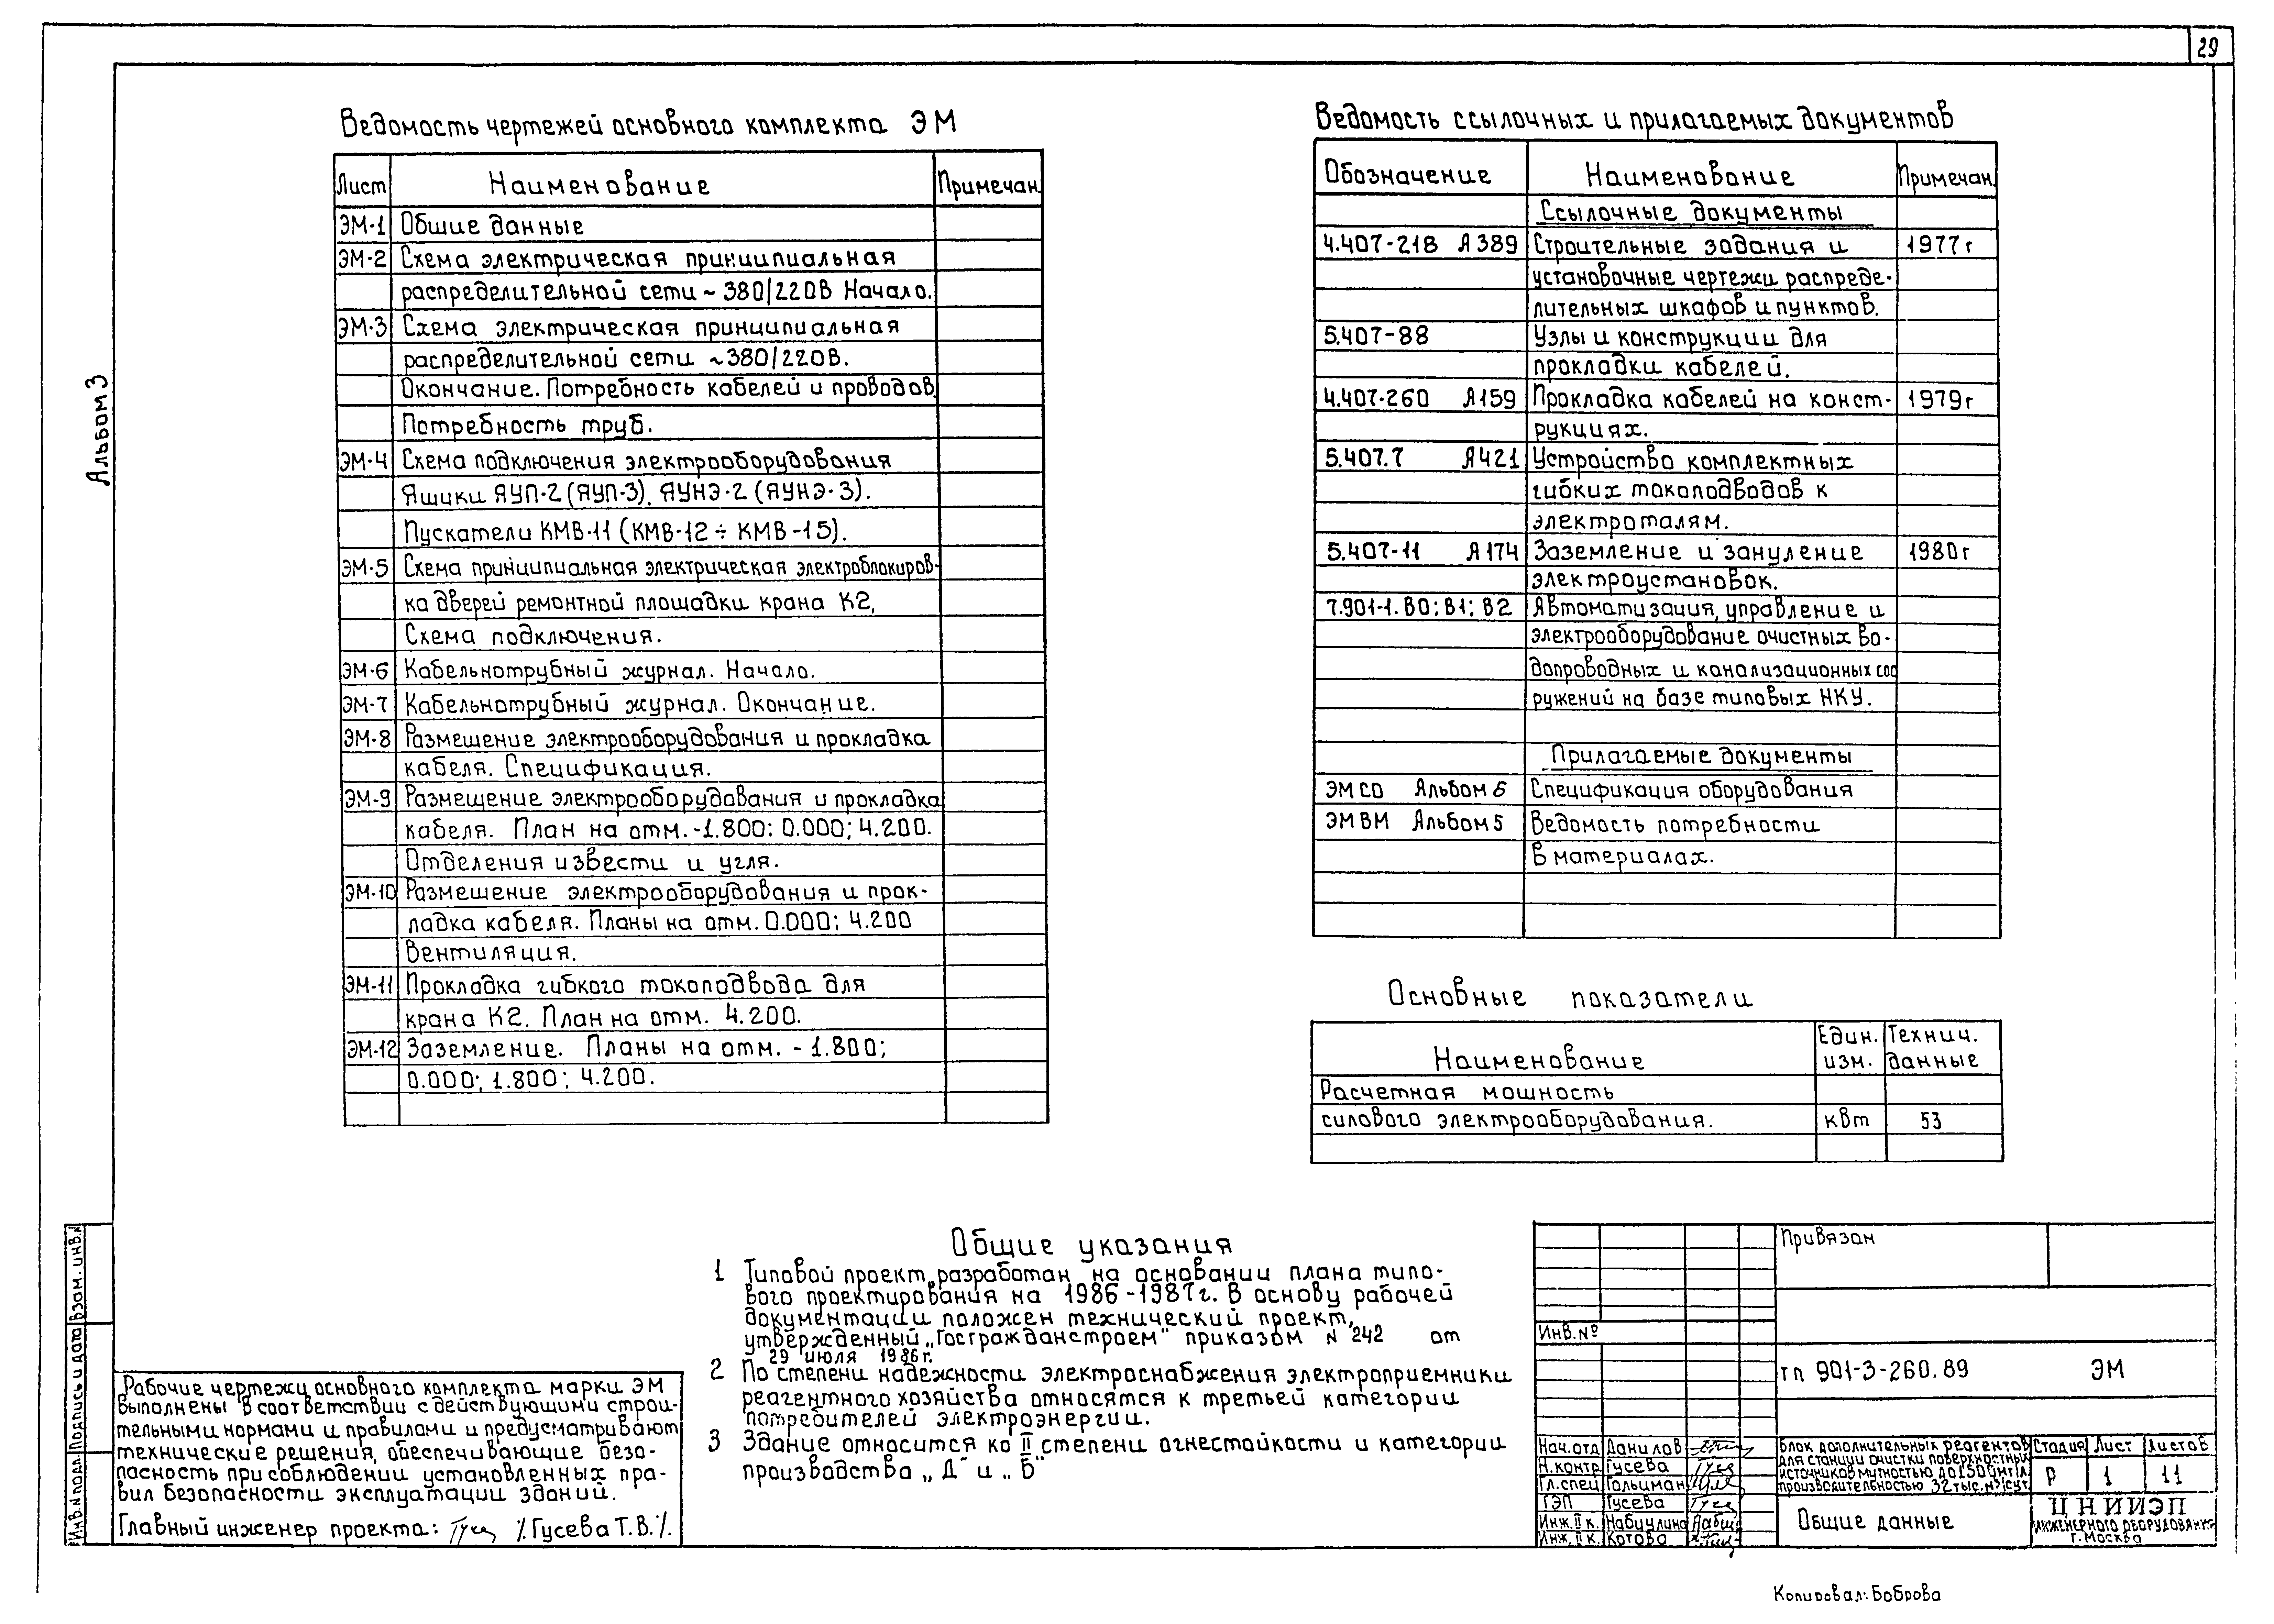 29
Альбом 3
Ведомость чертежей основного комплекта ЭМ
Лист Наименование Примечан.
ЭМ-1 Общие данные
ЭМ-2 Схема электрическая принципиальная
распределительной сети ~ 380/220В Начало.
ЭМ-3 Схема электрическая принципиальная
распределительной сети ~380/220В.
Окончание. Потребность кабелей и проводов.
Потребность труб.
ЭМ-4 Схема подключения электрооборудования
Ящики ЯУП-2 (ЯУП-3), ЯУНЭ-2 (ЯУНЭ-3).
Пускатели КМВ-11 (КМВ-12 ÷ КМВ-15).
ЭМ-5 Схема принципиальная электрическая электроблокиров-
ка дверей ремонтной площадки крана К2,
Схема подключения.
ЭМ-6 Кабельнотрубный журнал. Начало.
ЭМ-7 Кабельнотрубный журнал. Окончание.
ЭМ-8 Размещение электрооборудования и прокладка
кабеля. Спецификация.
ЭМ-9 Размещение электрооборудования и прокладка
кабеля. План на отм. -1.800; 0.000; 4.200.
Отделения извести и угля.
ЭМ-10 Размещение электрооборудования и прок-
ладка кабеля. Планы на отм. 0.000; 4.200
Вентиляция.
ЭМ-11 Прокладка гибкого токоподвода для
крана К2. План на отм. 4.200.
ЭМ-12 Заземление. Планы на отм. - 1.800;
0.000; 1.800; 4.200.
Ведомость ссылочных и прилагаемых документов
Обозначение Наименование Примечан.
Ссылочные документы
4.407-218 А389 Строительные задания и 1977г
установочные чертежи распреде-
лительных шкафов и пунктов.
5.407-88 Узлы и конструкции для
прокладки кабелей.
4.407-260 А159 Прокладка кабелей на конст- 1979г
рукциях.
5.407.7 А421 Устройство комплектных
гибких токоподводов к
электроталям.
5.407-11 А174 Заземление и зануление 1980г
электроустановок.
7.901-1. В0; В1; В2 Автоматизация, управление и
электрооборудование очистных во-
допроводных и канализационных соо
ружений на базе типовых НКУ.
Прилагаемые документы
ЭМ СО Альбом 6 Спецификация оборудования
ЭМ ВМ Альбом 5 Ведомость потребности
в материалах.
Основные показатели
Наименование Един. изм. Технич. данные
Расчетная мощность
силового электрооборудования. квт 53
Общие указания
1 Типовой проект разработан на основании плана типо-
вого проектирования на 1986-1987г. В основу рабочей
документации положен технический проект,
утвержденный „Госгражданстроем" приказом N 242 от
29 июля 1986г.
2 По степени надежности электроснабжения электроприемники
реагентного хозяйства относятся к третьей категории
потребителей электроэнергии.
3 Здание относится ко II степени огнестойкости и категории
производства „Д" и „Б"
Рабочие чертежи основного комплекта марки ЭМ
выполнены в соответствии с действующими строи-
тельными нормами и правилами и предусматривают
технические решения, обеспечивающие безо-
пасность при соблюдении установленных пра-
вил безопасности эксплуатации зданий.
Главный инженер проекта: /Гусева Т.В./.
Взам. инв.
Подпись и дата
Инв. N подл.
Привязан
Инв. №
тп 901-3-260.89 ЭМ
Нач.отд Данилов
Н.контр. Гусева
Гл.спец. Гольцман
ГЭП Гусева
Инж. II к. Набиулина
Инж. II к. Котова
Блок дополнительных реагентов
для станции очистки поверхностных
источников мутностью до 1500 мг/л
производительностью 32 тыс. м³/сут.
Стадия Лист Листов
Р 1 11
Общие данные
ЦНИИЭП
инженерного оборудования
г. Москва
Копировал: Боброва